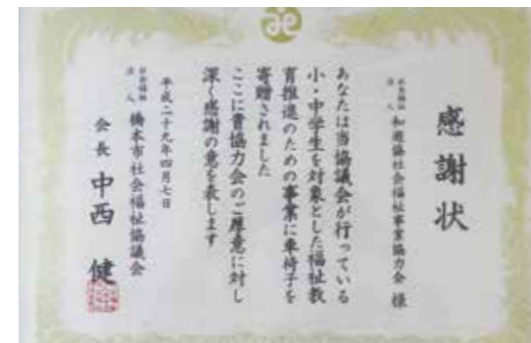 感謝状
社会福祉法人 和遊協社会福祉事業協力会 様
あなたは当協議会が行っている
小・中学生を対象とした福祉教
育推進のための事業に車椅子を
寄贈されました
ここに貴協力会のご厚意に対し
深く感謝の意を表します
平成二十九年四月七日
社会福祉法人 橋本市社会福祉協議会
会長 中西 健